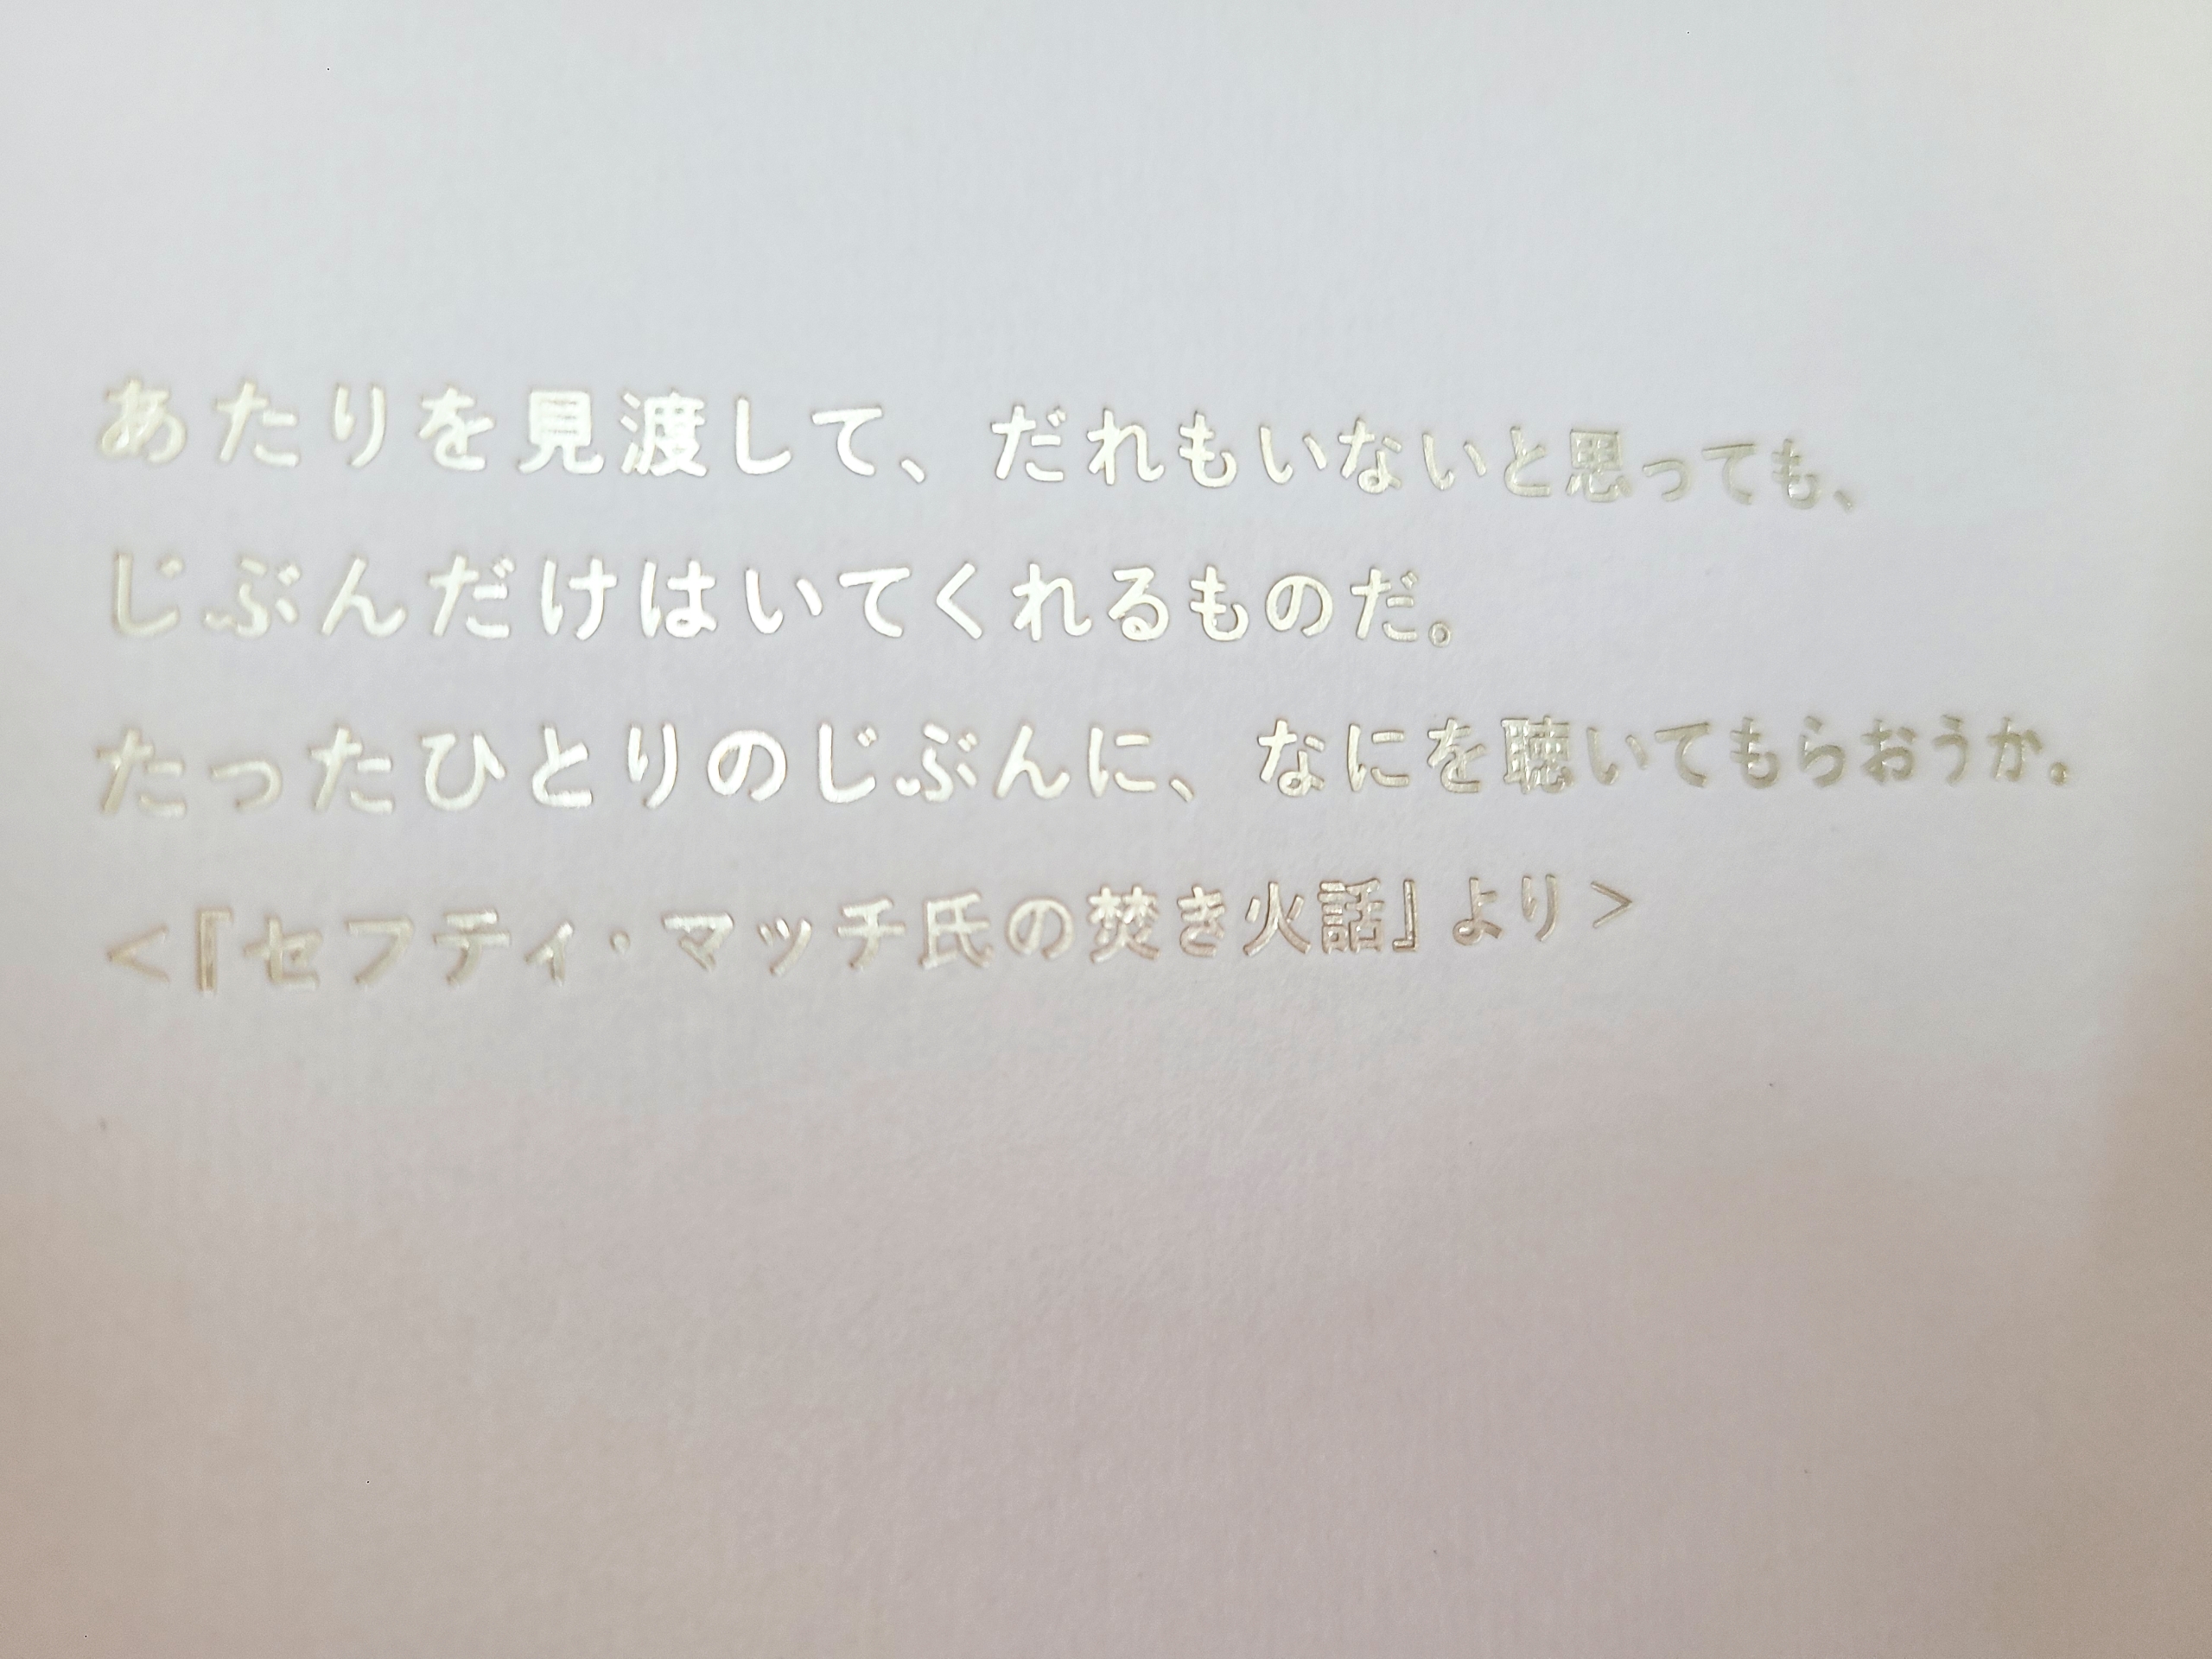 あたりを見渡して、だれもいないと思っても、
じぶんだけはいてくれるものだ。
たったひとりのじぶんに、なにを聴いてもらおうか。
<『セフティ・マッチ氏の焚き火話』より>